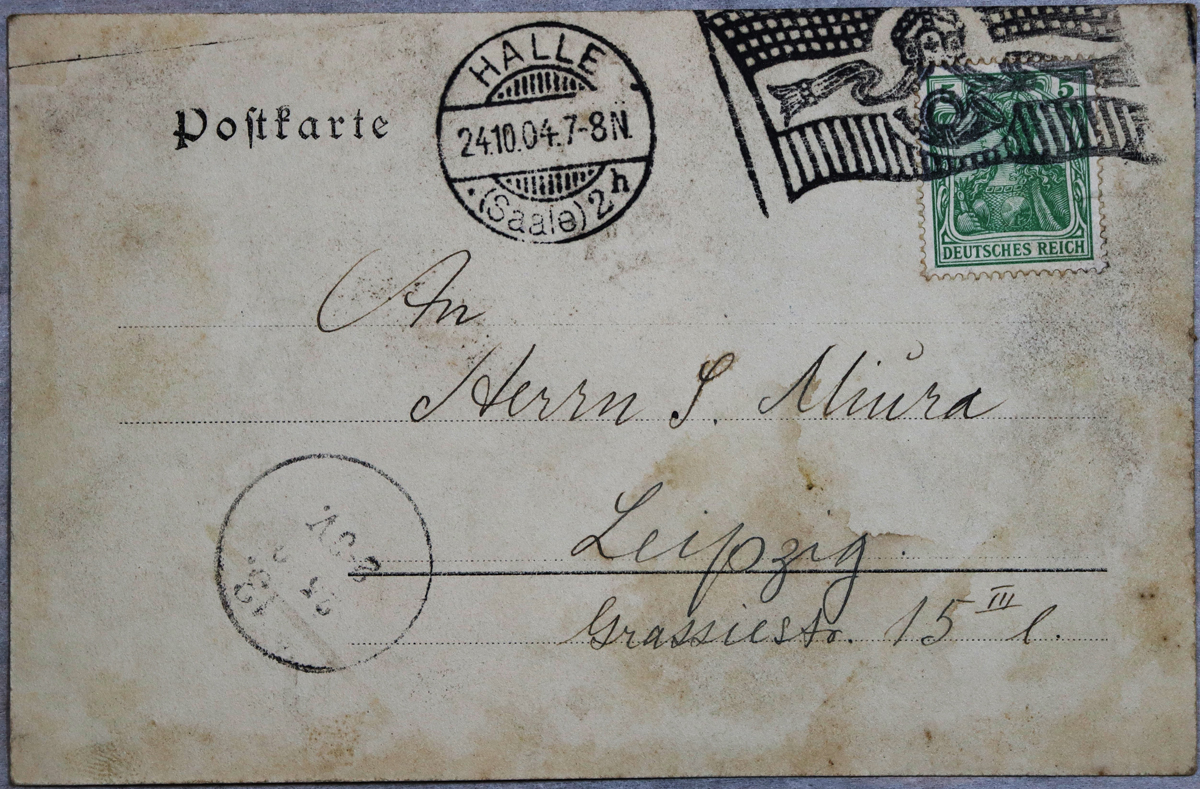 Postkarte
HALLE
24.10.04.7-8N.
(Saale) 2h
5 5
DEUTSCHES REICH
An
Herrn S. Miura
Leipzig.
Grassistr. 15 III l.
8-9V.
25